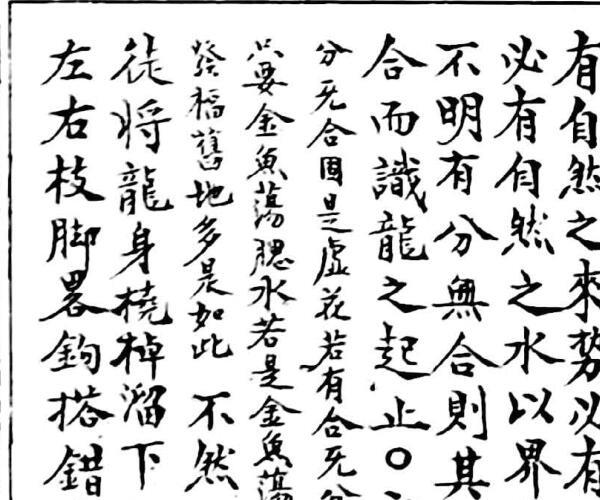 有自然之來勢以有
必有自然之水以界
不明有分無合則其
合而識龍之起止○
分旡合固是虛花若有合旡分
只要金魚蕩腮水若是金魚蕩
發福舊地多是如此 不然
從將龍身橈棹溜下
左右枝脚畧鈎搭錯